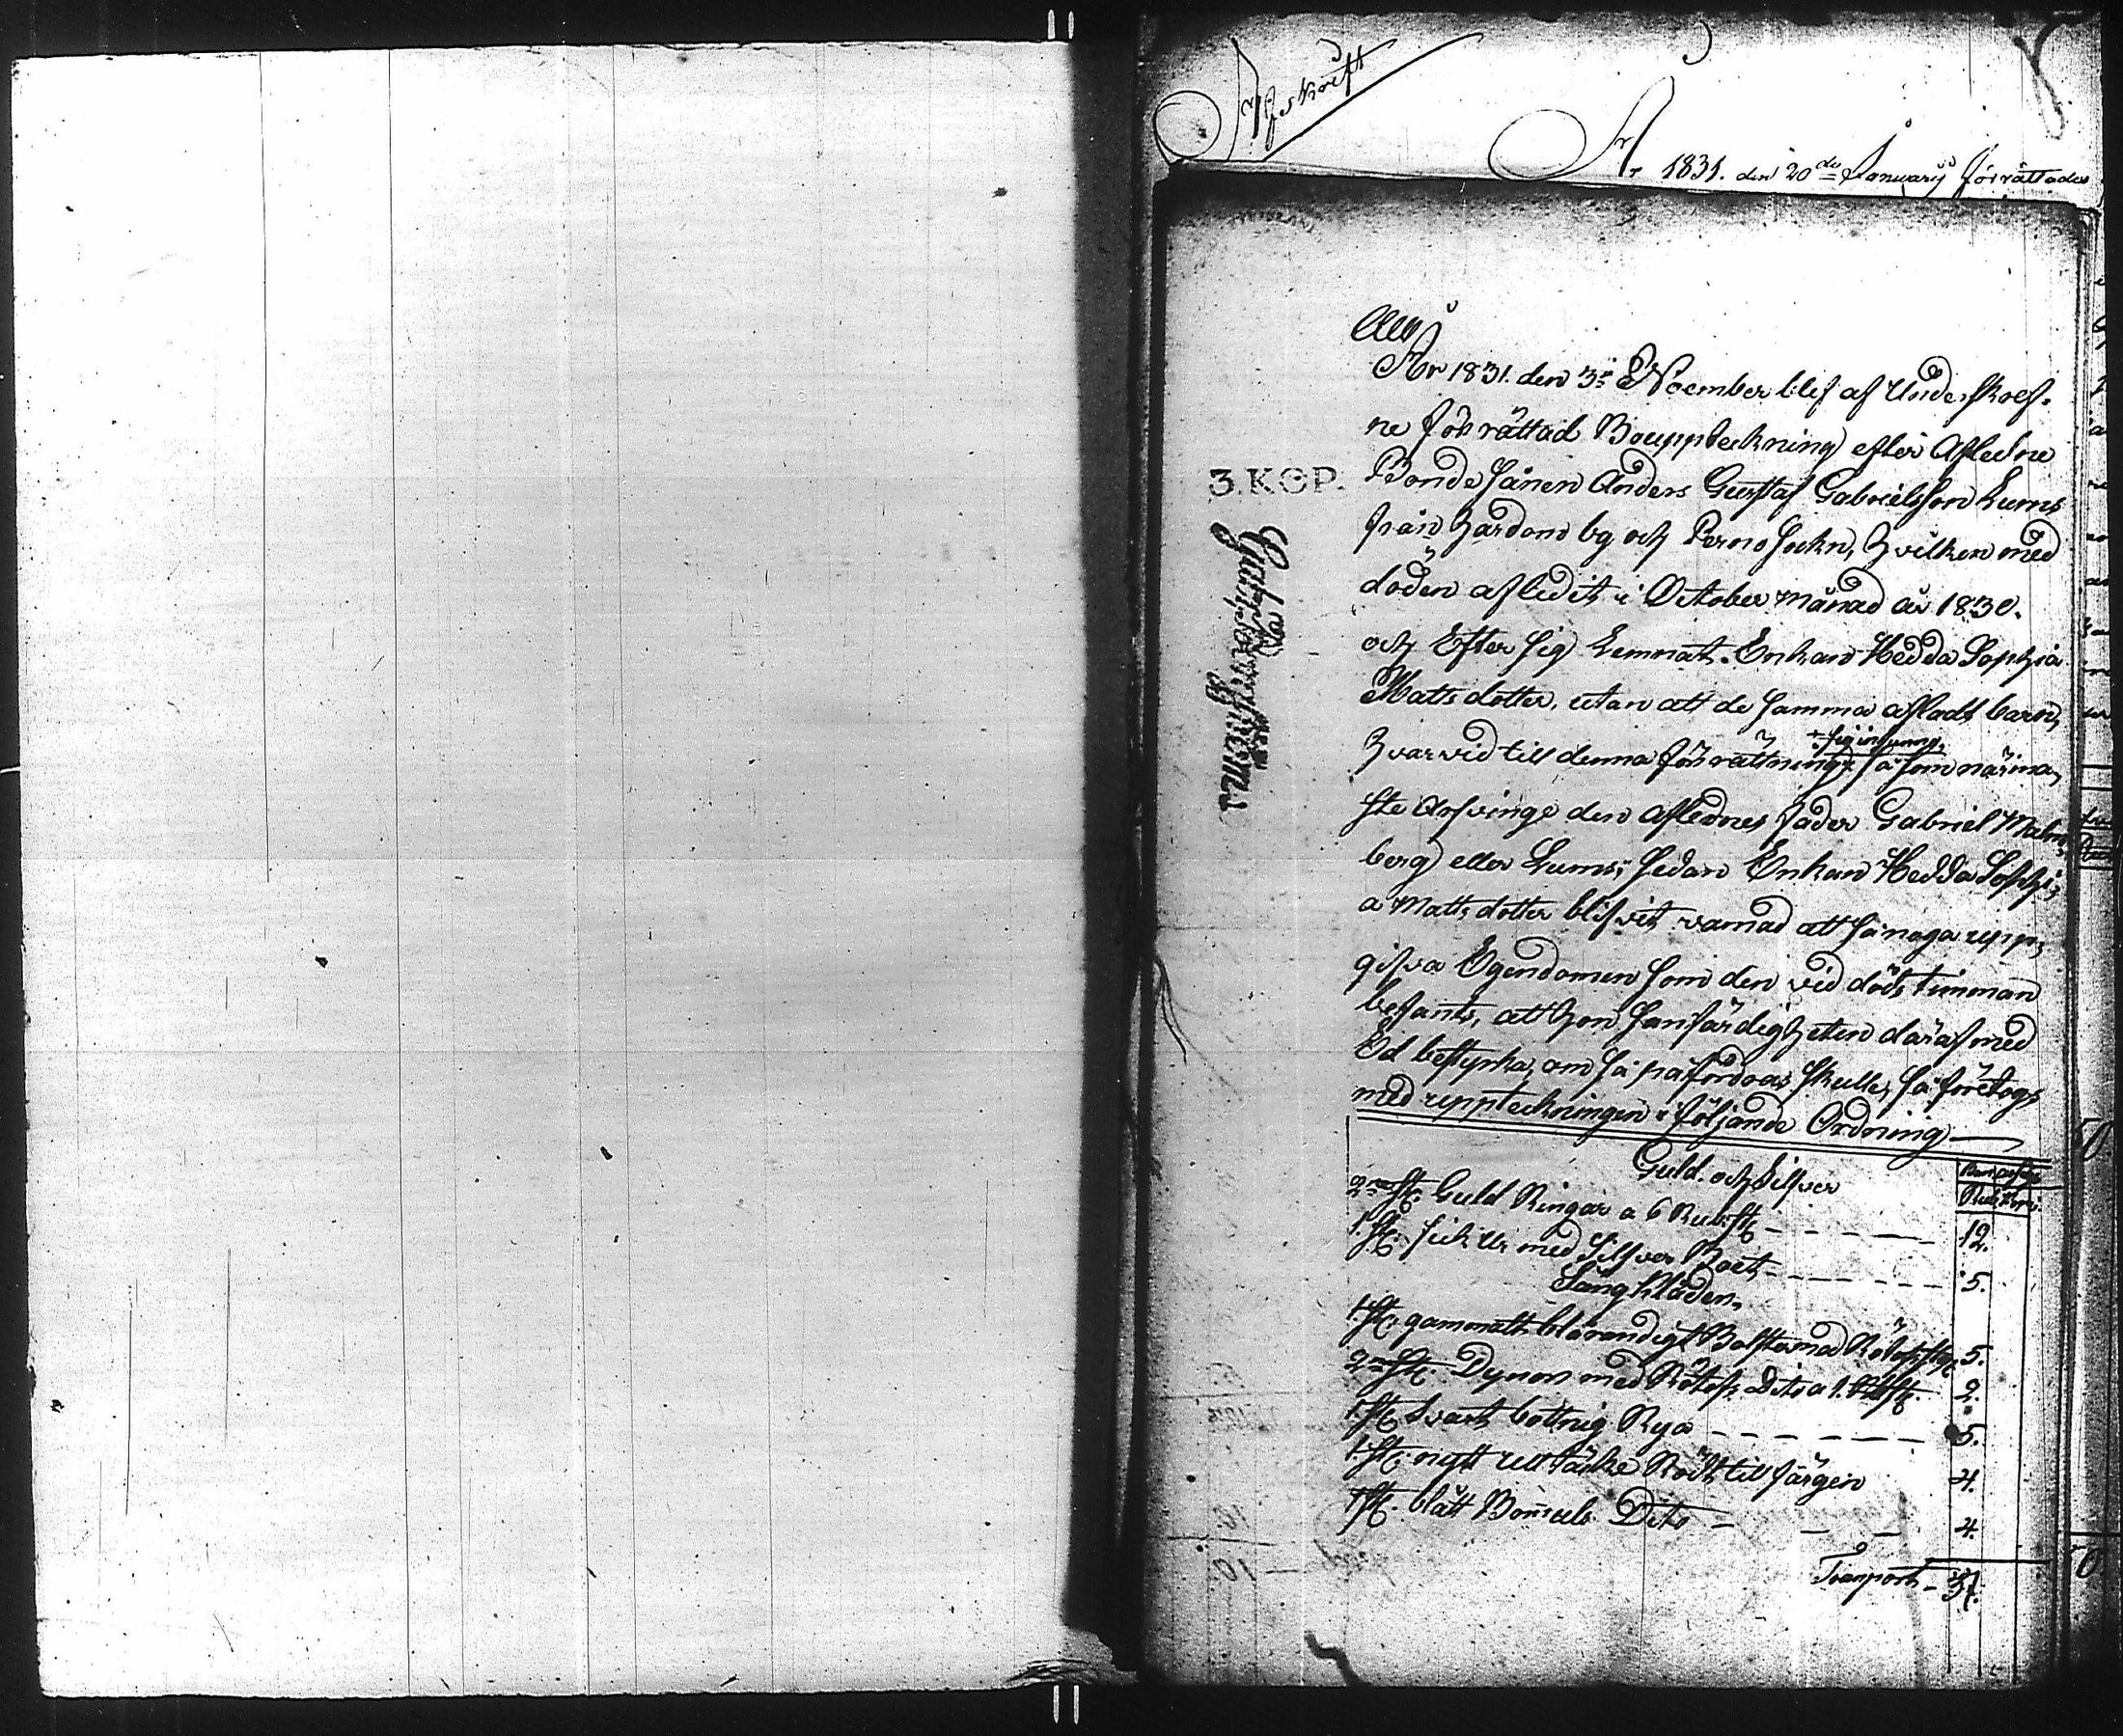 Afskrift
År 1831. den 20de January förrättades
År 1831. den 3je November blef af Underskref-
ne förrättad Bouppteckning efter Afledne
3. KOP. Bonde Sånen Anders Gustaf Gabrielsson Lums
från Hardom by och Perno Sockn, hvilken med
döden afledit i October månad år 1830.
och Efter sig Lemnat Enkan Hedda Sophia
Mattsdotter, utan att de samma afladt barn,
sig infunnit
hvarvid till denna förrättning såsom närma,
ste Arfvinge den Aflednes fader Gabriel Malm,
berg eller Lums; sedan Enkan Hedda Sophi,
a Mattsdotter blifvit varnad att så noga upp,
gifva Egendomen som den vid döds timman
befants, att hon sanfärdigheten däraf med
Ed bestyrka, om så påfordras skulle, så företogs
med uppteckningen i följande Ordning
Guld. och Silfver
2ne st. Guld Ringar a 6 Rub. st. 12.
1. st. fick Ur med Silfver Boett 5.
Sängkläder,
1. st. gammalt blårandigt Bolster med 5.
2ne st. Dynor med Dito a 1. 2.
1 st. Svart bottnig Rya 5.
1. st. nytt ull täcke Rödt till färgen 4.
1 st. blått Bomuls Dito 4.
Transport 37.